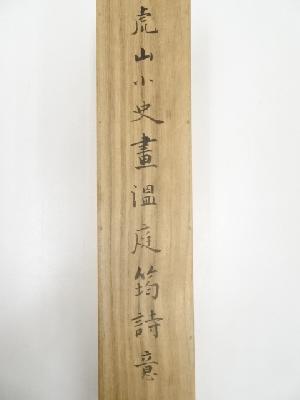 虎山小史畫溫庭筠詩意